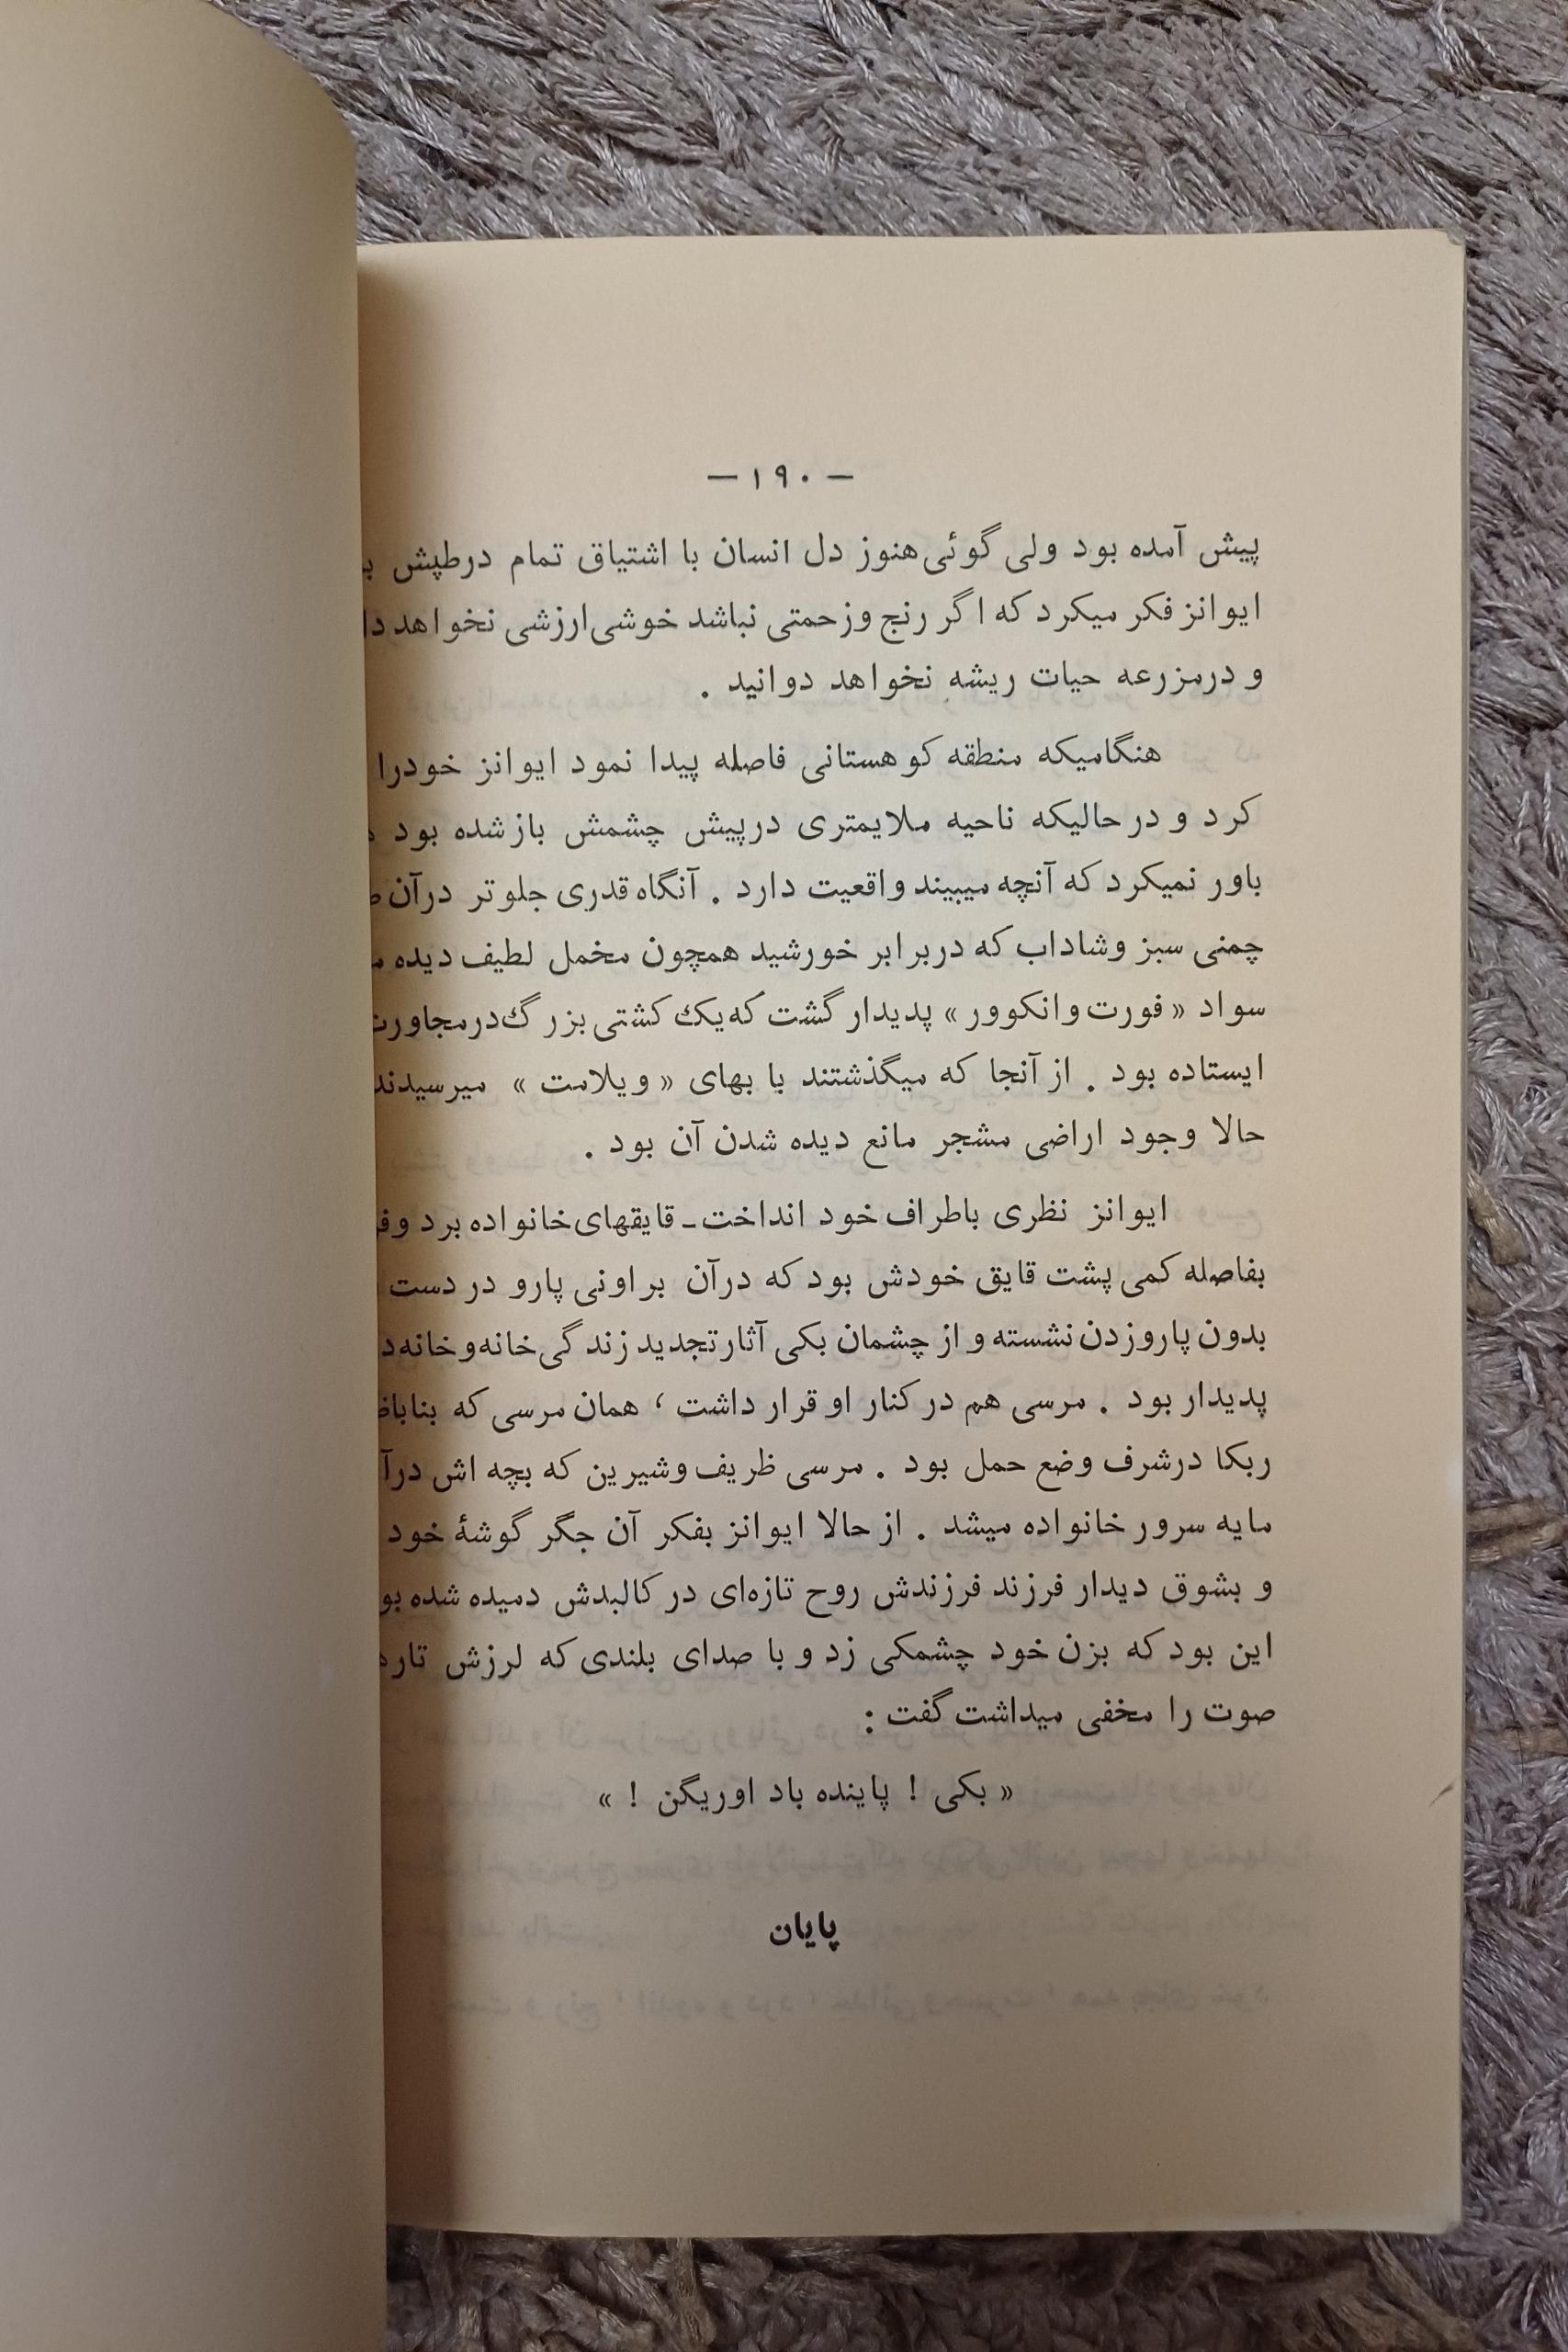 — ۱۹۰ —
پیش آمده بود ولی گوئی هنوز دل انسان با اشتیاق تمام درطپش
ایوانز فکر میکرد که اگر رنج وزحمتی نباشد خوشی ارزشی نخواهد
و درمزرعه حیات ریشه نخواهد دوانید .
هنگامیکه منطقه کوهستانی فاصله پیدا نمود ایوانز خودرا
کرد و در حالیکه ناحیه ملایمتری درپیش چشمش بازشده بود
باور نمیکرد که آنچه میبیند واقعیت دارد . آنگاه قدری جلوتر درآن
چمنی سبز وشاداب که دربرابر خورشید همچون مخمل لطیف دیده
سواد « فورت وانکوور » پدیدار گشت که یك کشتی بزرگ درمجاورت
ایستاده بود . از آنجا که میگذشتند با بهای « ویلامت » میرسیدند
حالا وجود اراضی مشجر مانع دیده شدن آن بود .
ایوانز نظری باطراف خود انداخت ـ قایقهای خانواده برد
بفاصله کمی پشت قایق خودش بود که درآن براونی پارو در دست
بدون پاروزدن نشسته و از چشمان بکی آثارتجدید زندگی خانه و
پدیدار بود . مرسی هم در کنار او قرار داشت ، همان مرسی که
ربکا درشرف وضع حمل بود . مرسی ظریف وشیرین که بچه اش
مایه سرور خانواده میشد . از حالا ایوانز بفکر آن جگر گوشهٔ خود
و بشوق دیدار فرزند فرزندش روح تازه‌ای در کالبدش دمیده شده
این بود که بزن خود چشمکی زد و با صدای بلندی که لرزش
صوت را مخفی میداشت گفت :
« بکی ! پاینده باد اوریگن ! »
پایان